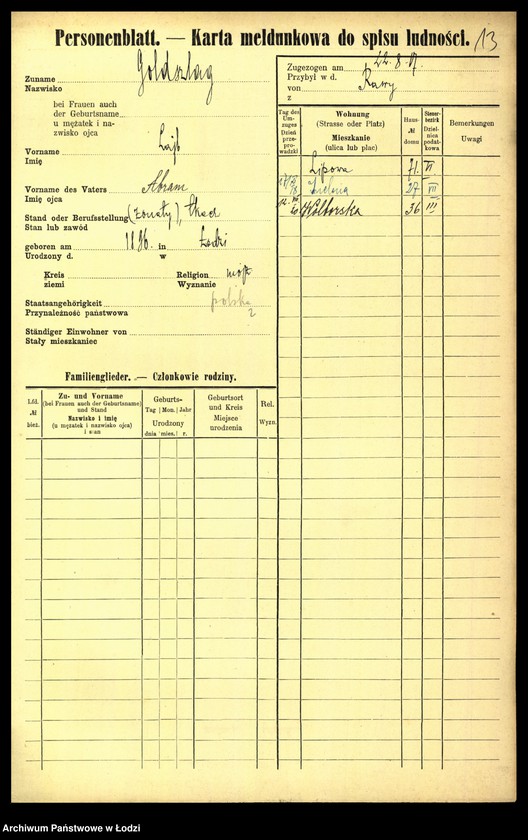 Personenblatt. — Karta meldunkowa do spisu ludności. 13
Zuname Goldszlag
Nazwisko
bei Frauen auch
der Geburtsname
u mężatek i na-
zwisko ojca
Vorname Lajb
Imię
Vorname des Vaters Abram
Imię ojca
Stand oder Berufsstellung (żonaty), tkacz
Stan lub zawód
geboren am 1886. in Łodzi
Urodzony d. w
Kreis Religion mojż
ziemi Wyznanie
Staatsangehörigkeit polska
Przynależność państwowa 2
Ständiger Einwohner von
Stały mieszkaniec
Zugezogen am 22.8.17.
Przybył w d.
von Rawy
z
Tag des Um-zuges
Dzień prze-prowadzki
Wohnung
(Strasse oder Platz)
Mieszkanie
(ulica lub plac)
Haus-
№
domu
Steuer-bezirk
Dziel-nica podat-kowa
Bemerkungen
Uwagi
Lipowa 71. VI
Zielona 27 III
Wólborska 36 III
Familienglieder. — Członkowie rodziny.
Lfd.
№
bież.
Zu- und Vorname
(bei Frauen auch der Geburtsname)
und Stand
Nazwisko i imię
(u mężatek i nazwisko ojca)
i stan
Geburts-
Tag Mon. Jahr
Urodzony
dnia mies. r.
Geburtsort
und Kreis
Miejsce
urodzenia
Rel.
Wyzn.
Archiwum Państwowe w Łodzi